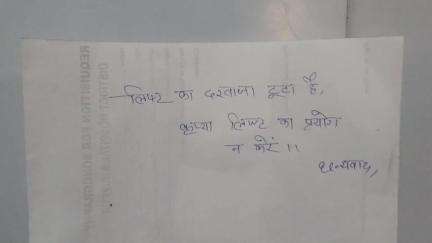 लिफ्ट का दरवाजा टूटा है,
कृप्या लिफ्ट का प्रयोग
न करें।।
धन्यवाद,